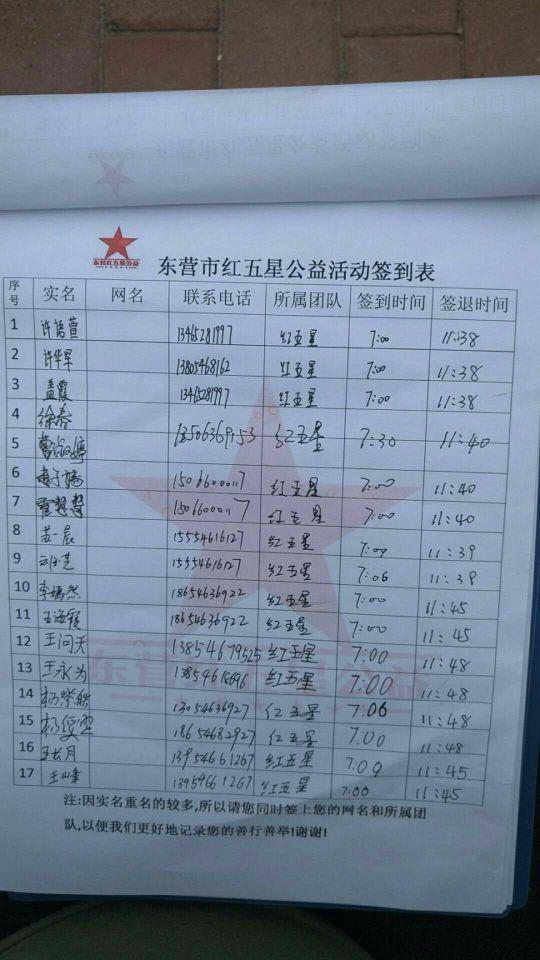 东营红五星公益
东营市红五星公益活动签到表
序号 实名 网名 联系电话 所属团队 签到时间 签退时间
1 许语萱 13465281997 红五星 7:00 11:38
2 许华军 13805468162 红五星 7:00 11:38
3 孟霞 13465281997 红五星 7:00 11:38
4 徐春
5 13506369153 红五星 7:30 11:40
6 15066000117 红五星 7:00 11:40
7 15066000117 红五星 7:00 11:40
8 苏一晨 15554616127 红五星 7:00 11:39
9 15554616127 红五星 7:06 11:39
10 李嫣然 18654636922 红五星 7:00 11:45
11 王海霞 18654636922 红五星 7:00 11:45
12 王问天 13854679525 红五星 7:00 11:48
13 王永为 红五星 7:00 11:48
14 13054636927 红五星 7:06 11:48
15 18654682927 红五星 7:00 11:48
16 13954661267 红五星 7:09 11:45
17 王山峰 13954661267 红五星 7:00 11:45
东营红五星公益
注:因实名重名的较多,所以请您同时签上您的网名和所属团
队,以便我们更好地记录您的善行善举!谢谢!